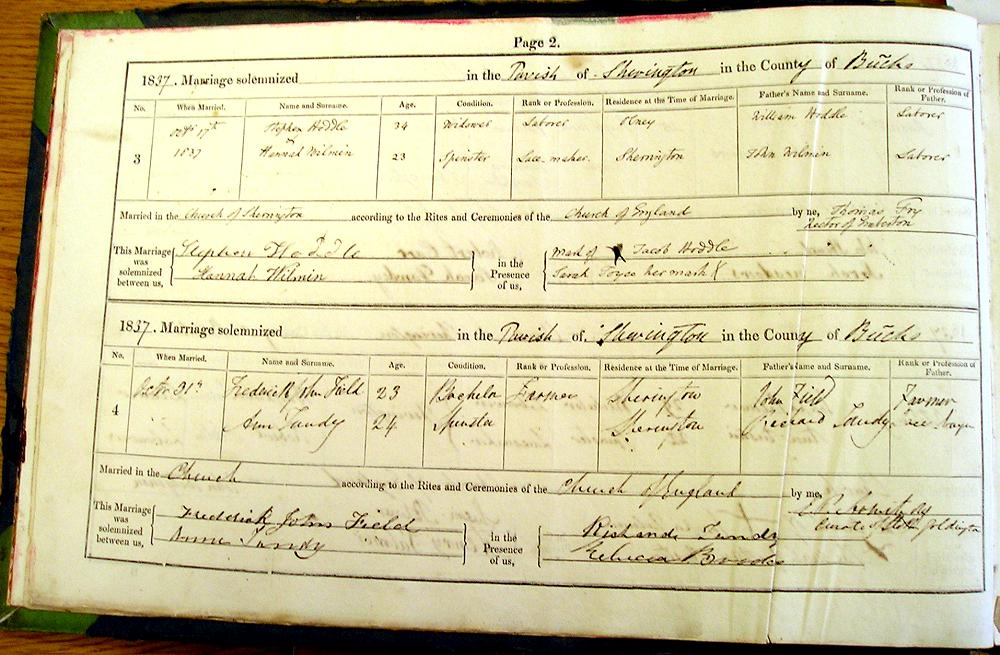 Page 2.
1837. Marriage solemnized in the Parish of Sherington in the County of Bucks
No. When Married. Name and Surname. Age. Condition. Rank or Profession. Residence at the Time of Marriage. Father's Name and Surname. Rank or Profession of Father.
3 Octr 17th Stephen Hoddle 34 Widower Laborer Olney William Hoddle Laborer
1837 Hannah Wilmin 23 Spinster Lace-maker. Sherington John Wilmin Laborer
Married in the Church of Sherington according to the Rites and Ceremonies of the Church of England by me, Thomas Fry
Rector of
This Marriage was solemnized between us, Stephen Hoddle in the Presence of us, Mark of Jacob Hoddle
Hannah Wilmin Sarah her mark X
1837. Marriage solemnized in the Parish of Sherington in the County of Bucks
No. When Married. Name and Surname. Age. Condition. Rank or Profession. Residence at the Time of Marriage. Father's Name and Surname. Rank or Profession of Father.
4 Octr 31st Frederick John Field 23 Bachelor Farmer Sherington John Field Farmer
Ann Tandy 24 Spinster Sherington Richard Tandy Lace
Married in the Church according to the Rites and Ceremonies of the Church of England by me,
Curate
This Marriage was solemnized between us, Frederick John Field in the Presence of us, Tandy
Anne Tandy Rebecca